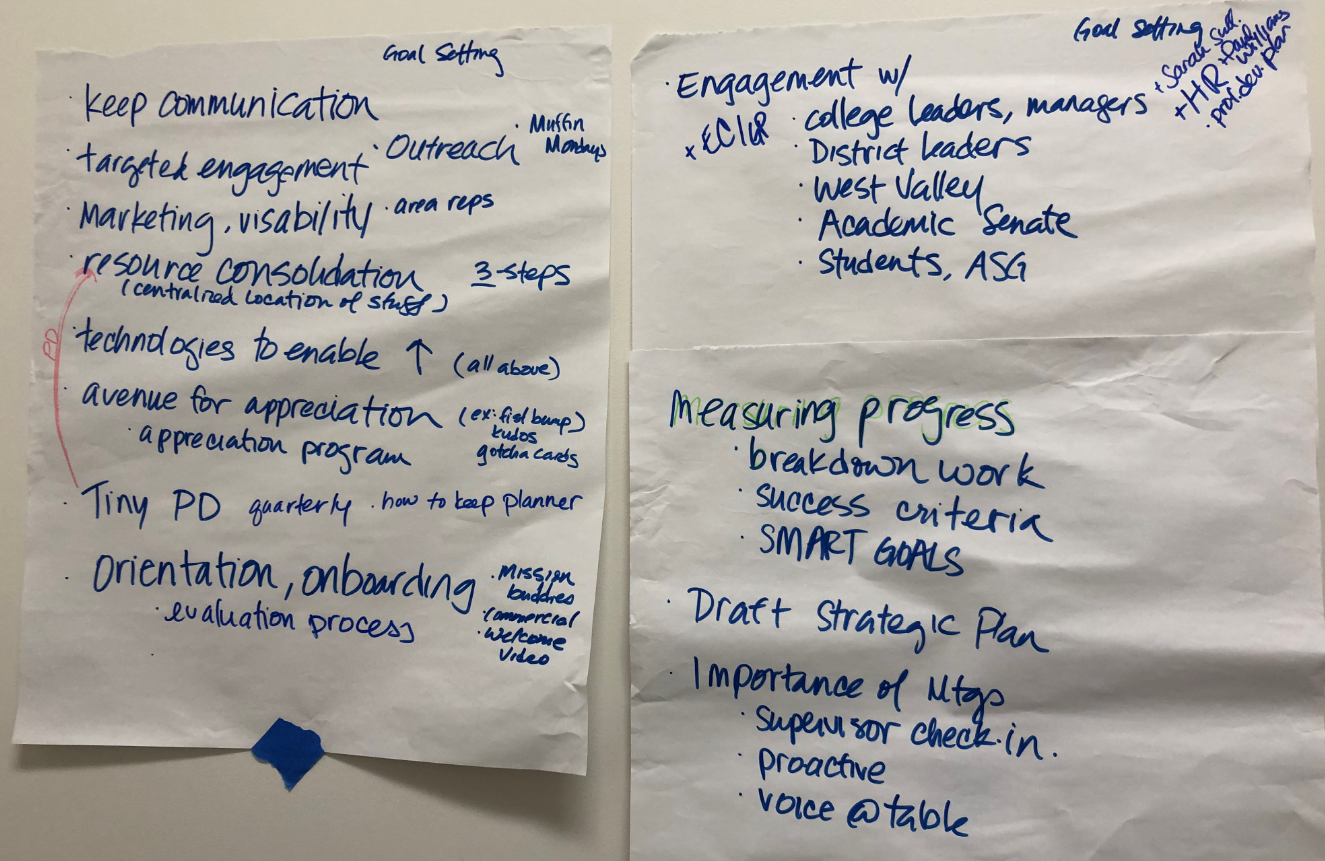 Goal Setting
· keep communication
· targeted engagement · Outreach · Muffin Mondays
· Marketing, visability · area reps
· resource consolidation 3-steps
(centralized location of stuff)
PD
· technologies to enable ↑ (all above)
· avenue for appreciation (ex: fist bump)
kudos
· appreciation program gotcha cards
· Tiny PD quarterly · how to keep planner
· Orientation, onboarding · Mission
buddies
· evaluation process · Commercial
· Welcome
Video
Goal Setting
· Engagement w/
· college leaders, managers + Sarah
+ Paul Williams
+ HR
· prof. dev. plan
· District leaders
· West Valley
· Academic Senate
· Students, ASG
Measuring progress
· breakdown work
· success criteria
· SMART GOALS
· Draft Strategic Plan
· Importance of Mtgs
· supervisor check-in.
· proactive
· voice @ table